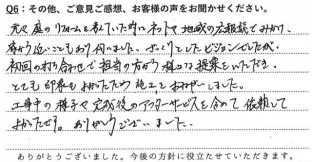 Q6：その他、ご意見ご感想、お客様の声をお聞かせください。
元々庭のリフォームを考えていた時にネットや地域の広報誌でみかけ、
家から近いこともあり伺いました。ざっくりとしたビジョンでしたが、
初回の打ち合わせで担当の方から様々な提案をいただき、
とても印象もよかったため施工をお願いしました。
工事中の様子や完成後のアフターサービスも含めて依頼して
よかったです。ありがとうございました。
ありがとうございました。今後の方針に役立たせていただきます。